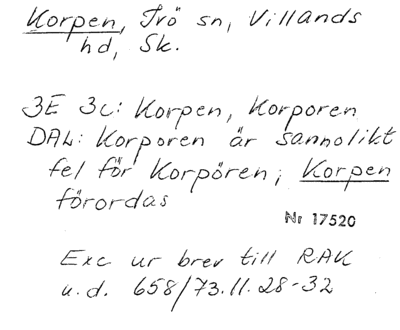 Korpen, Ivö sn, Villands
hd, Sk.
3E 3c: Korpen, Korporen
DAL: Korporen är sannolikt
fel för Korpören; Korpen
förordas
Nr 17520
Exc ur brev till RAK
u.d. 658/73.11.28-32